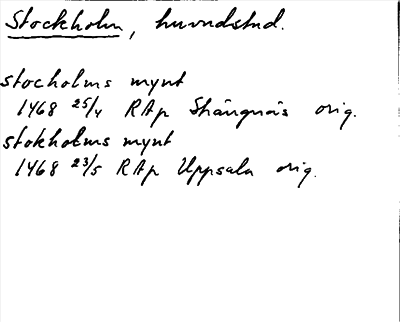 Stockholm, huvudstad.
stocholms mynt
1468 25/4 RAp Strängnäs orig.
stokholms mynt
1468 23/5 RAp Uppsala orig.